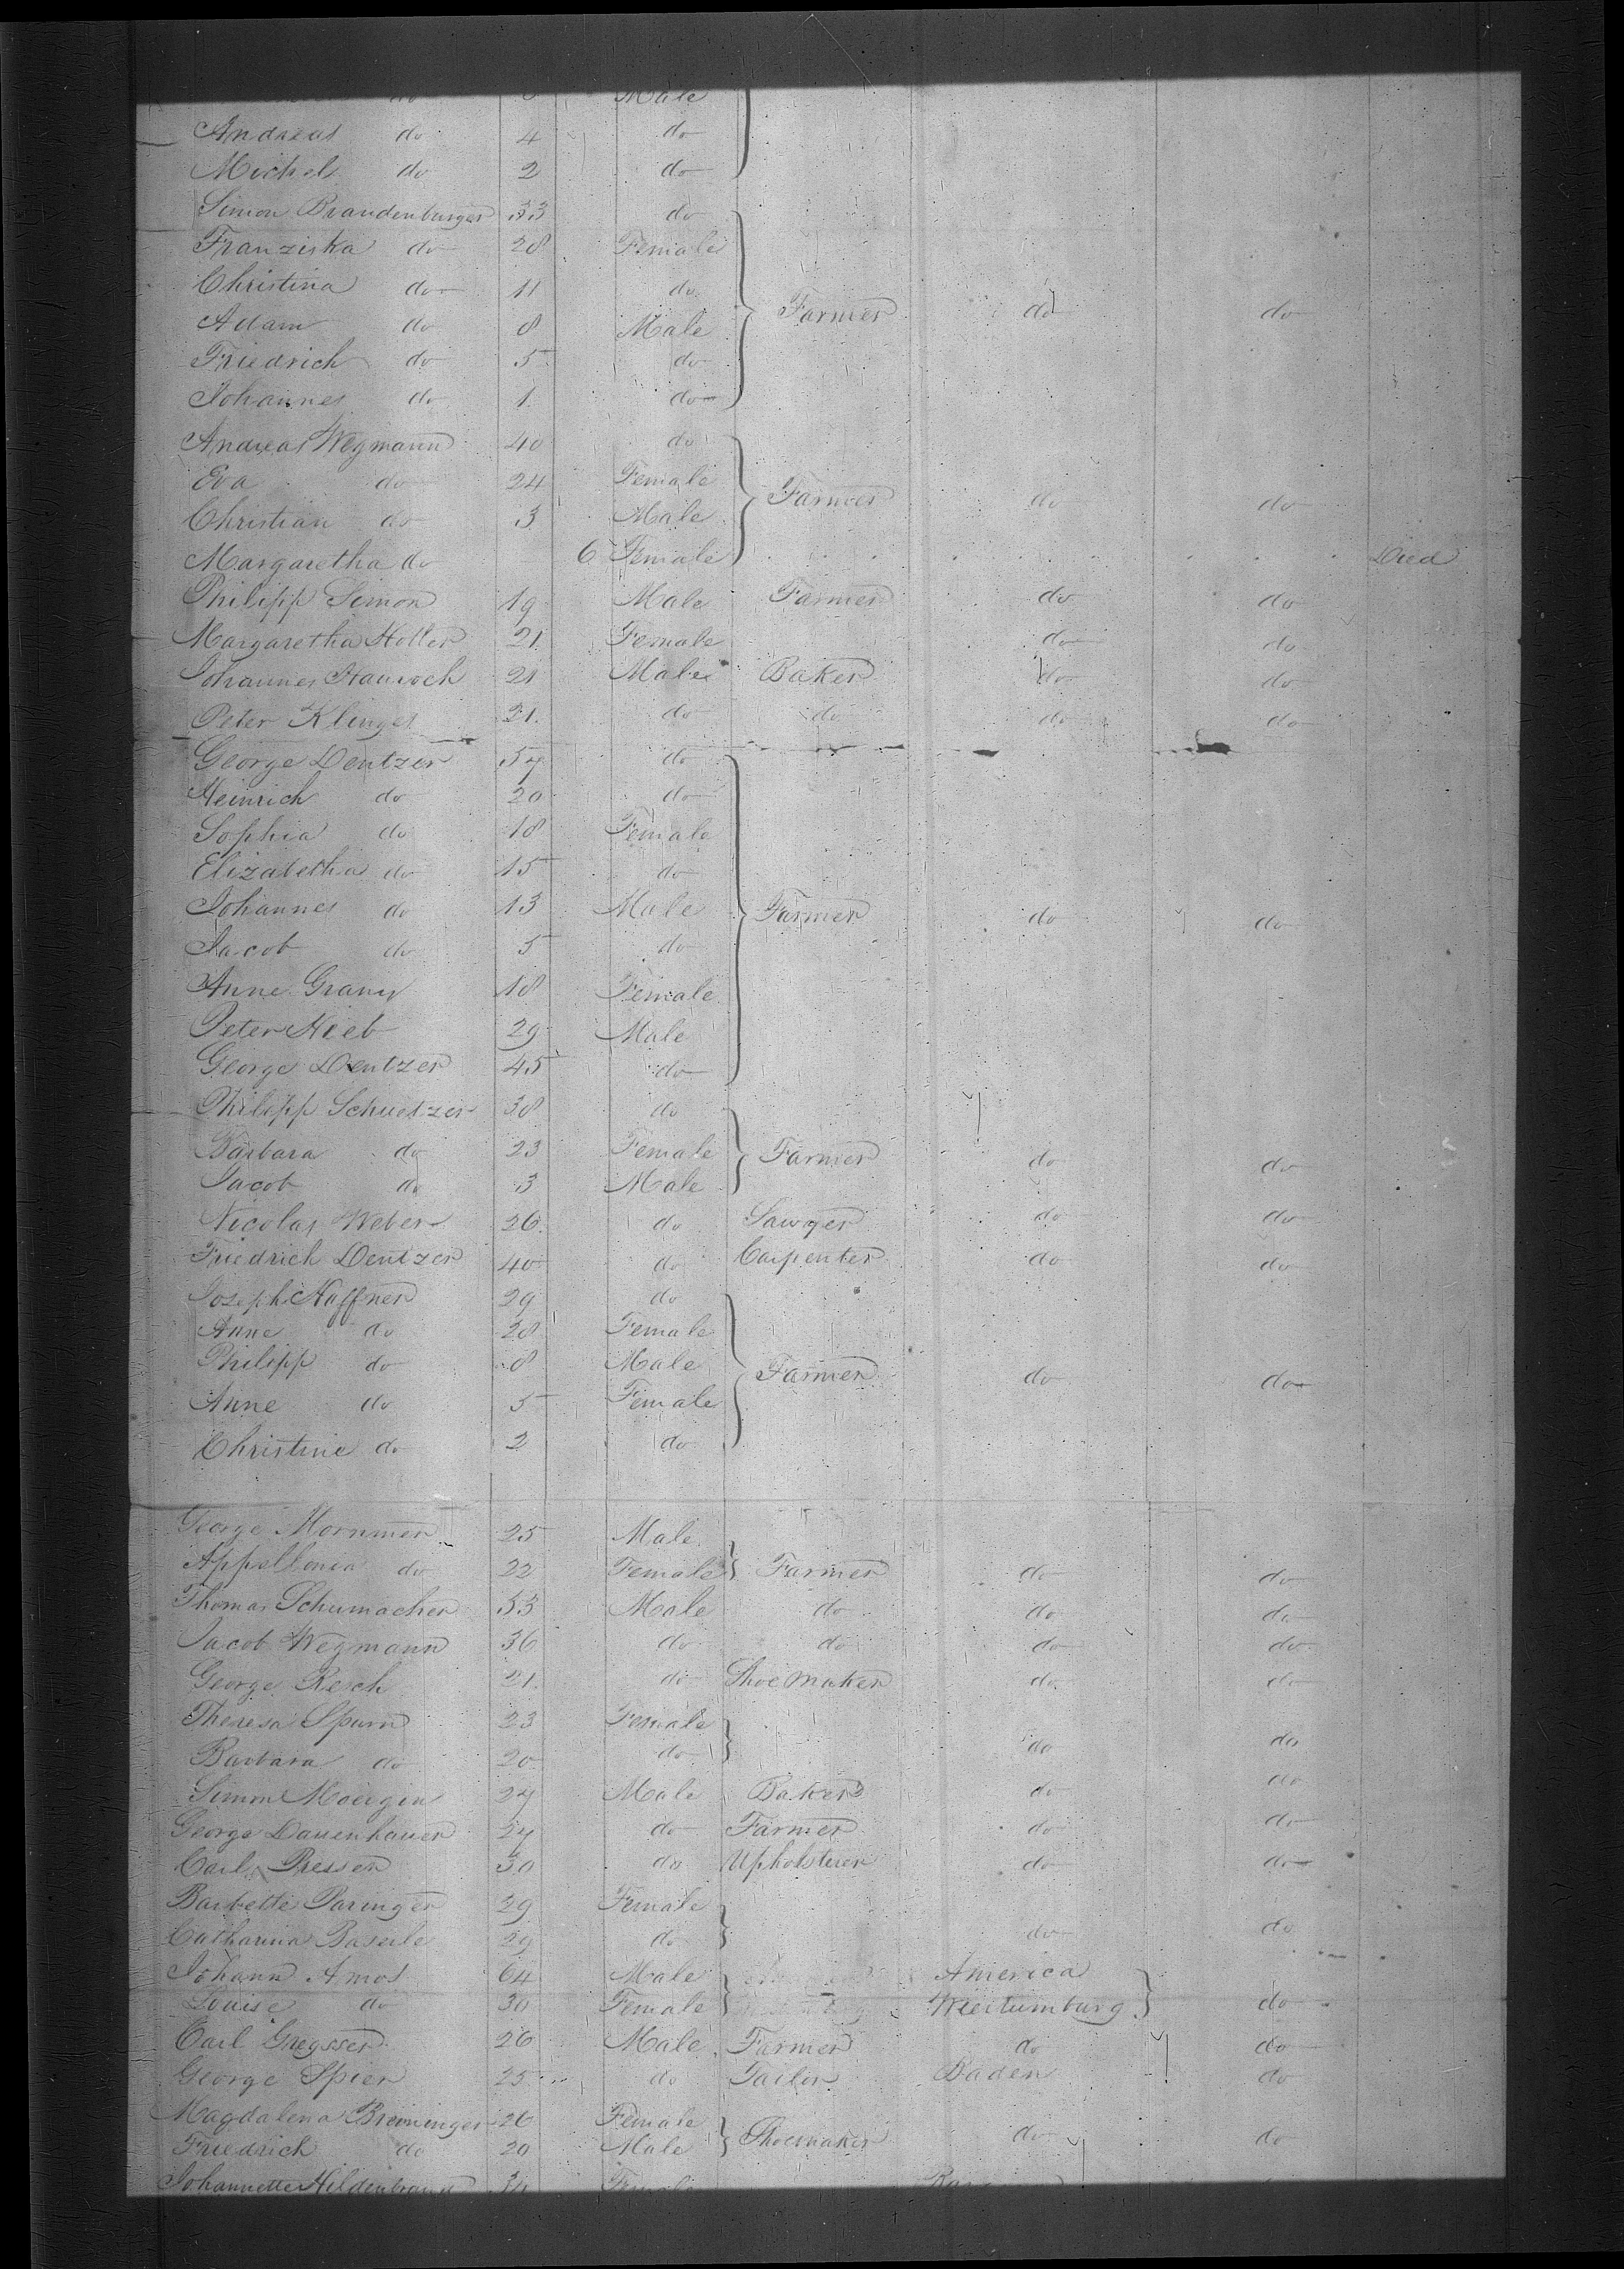 do Male
Andreas do 4 do
Michel do 2 do
Simon Brandenburger 33 do
Franziska do 28 Female
Christina do 11 do
Adam do 8 Male Farmer do do
Friedrich do 5 do
Johannes do 1 do
Andreas Wegmann 40 do
Eva do 24 Female Farmer do do
Christian do 3 Male
Margaretha do 6 Female Died
Philipp Simon 19 Male Farmer do do
Margaretha Hotter 21 Female do do
Johannes 21 Male Baker do do
Peter Klinger 21 do do do do
George Dentzer 57 do
Heinrich do 20 do
Sophia do 18 Female
Elizabetha do 15 do
Johannes do 13 Male Farmer do do
Jacob do 5 do
Anne 18 Female
Peter Hieb 29 Male
George Dentzer 45 do
Philipp Schuetzer 38 do
Barbara do 23 Female Farmer do do
Jacob do 3 Male
Nicolas Weber 26 do Sawyer do do
Friedrich Dentzer 40 do Carpenter do do
Joseph Haffner 29 do
Anne do 28 Female
Philipp do 8 Male Farmer do do
Anne do 5 Female
Christine do 2 do
George 25 Male
Appellonia do 22 Female Farmer do do
Thomas Schumacher 33 Male do do do
Jacob Wegmann 36 do do do do
George Resch 21 do Shoemaker do do
Theresa Spurn 23 Female
Barbara do 20 do do do
Simon 27 Male Baker do do
George Dauenhauer 27 do Farmer do do
Carl Presser 30 do Upholsterer do do
Barbette Paringer 29 Female
Catharina Baserle 29 do do do
Johann Amos 64 Male America
Louise do 30 Female Wertumburg do
Carl Gregsser 26 Male Farmer do do
George Spier 25 do Tailor Baden do
Magdalena Breuninger 26 Female
Friedrich do 20 Male Shoemaker do do
Johannette Hildenbrand Female